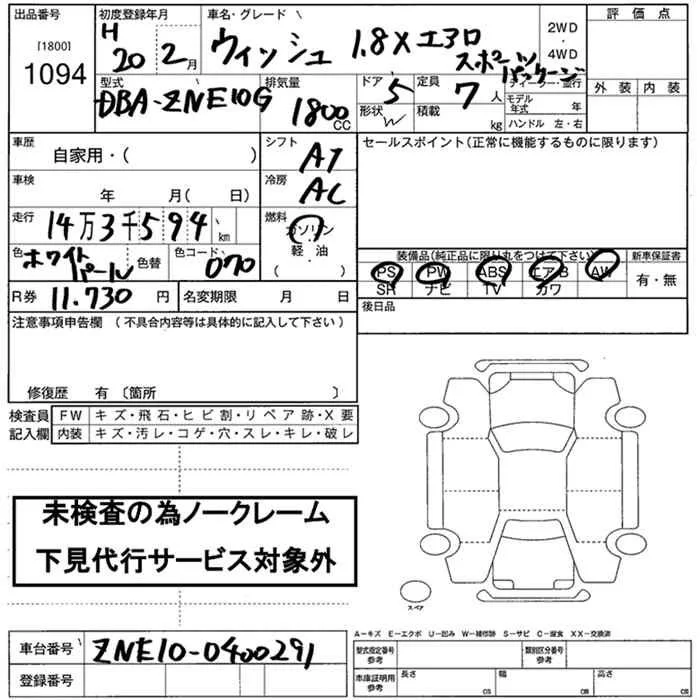 出品番号
[1800]
1094
初度登録年月
H
20 2月
車名・グレード
ウィッシュ 1.8Xエアロ
スポーツパッケージ
2WD
・
4WD
評価点
外装 内装
型式
DBA-ZNE10G
排気量
1800
CC
ドア
5
形状
W
定員
7人
積載
kg
ディーラー・並行
モデル
年式 年
ハンドル 左・右
車歴
自家用・( )
シフト
AT
車検
年 月( 日)
冷房
AC
走行
14万3千594
km
燃料
ガソリン
軽・油
( )
色
ホワイト
パール
色替
色コード
070
R券 11.730 円
名変期限 月 日
セールスポイント(正常に機能するものに限ります)
装備品(純正品に限り丸をつけて下さい)
新車保証書
PS PW ABS エアB AW
SR ナビ TV カワ
有・無
後日品
注意事項申告欄 (不具合内容等は具体的に記入して下さい)
修復歴 有 〔箇所 〕
検査員
記入欄
FW キズ・飛石・ヒビ割・リペア跡・X要
内装 キズ・汚レ・コゲ・穴・スレ・キレ・破レ
未検査の為ノークレーム
下見代行サービス対象外
スペア
車台番号 ZNE10-0400291
登録番号
A-キズ E-エクボ U-凹み W-補修跡 S-サビ C-腐食 XX-交換済
型式指定番号
参考
類別区分番号
参考
車庫証明用
参考
長さ
cm
幅
cm
高さ
cm